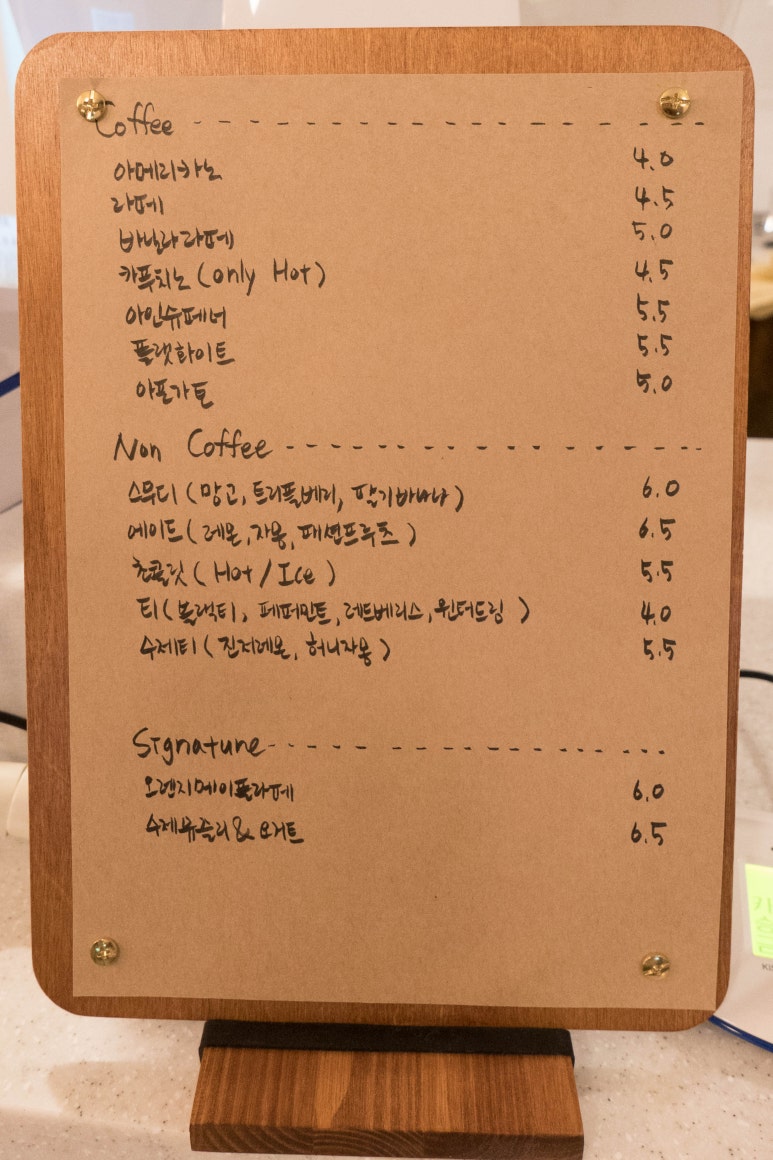 Coffee
아메리카노 4.0
라떼 4.5
바닐라라떼 5.0
카푸치노 (only Hot) 4.5
아인슈페너 5.5
플랫화이트 5.5
아포가토 5.0
Non Coffee
스무디 (망고, 트리플베리, 딸기바나나) 6.0
에이드 (레몬, 자몽, 패션프루츠) 6.5
초콜릿 (Hot / Ice) 5.5
티 (블랙티, 페퍼민트, 레드베리스, 윈터드림) 4.0
수제티 (진저레몬, 허니자몽) 5.5
Signature
오렌지메이플라떼 6.0
수제뮤즐리 & 요거트 6.5